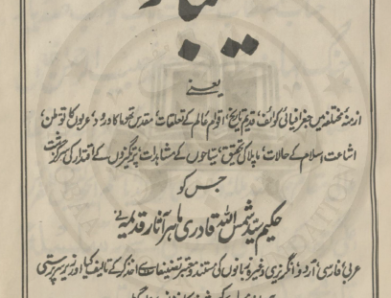 یعنے
ازمنہ مختلفہ میں جغرافیائی کوائف، قدیم تاریخ، اقوام عالم کے تعلقات، مقدس تھوما کا ورود، عربوں کا توطن،
اشاعت اسلام کے حالات، ماپلا کی تحقیق، سیاحوں کے مشاہدات، پرتگیزوں کے اقتدار کی سرگزشت
جس کو
حکیم سید شمس اللہ قادری ماہر آثار قدیمہ نے
عربی فارسی اردو انگریزی وغیرہ زبانوں کی مستند و معتبر تصنیفات سے اخذ کر کے تالیف کیا اور زیر سرپرستی